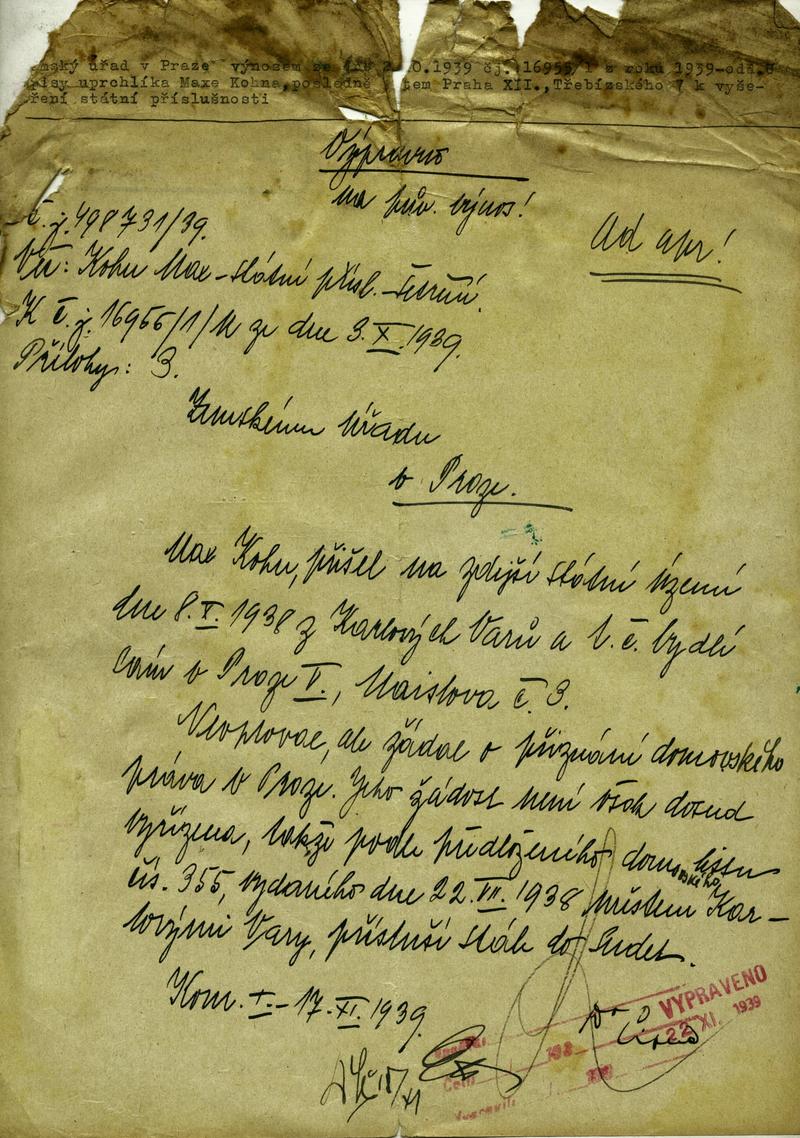 mský úřad v Praze výnosem ze .10.1939 čj. 16955/1 z roku 1939-odd.
isy uprchlíka Maxe Kohna, posledně tem Praha XII., Třebízského 7 k vyše-
ření státní příslušnosti
Výpravit
na pův. výnos!
Č.j. 498731/39.
Ad apr!
Věc: Kohn Max – státní přísl. – šetření.
K č.j. 16955/1/M ze dne 3.X.1939.
Přílohy: 3.
Zemskému úřadu
v Praze.
Max Kohn, přišel na zdejší státní území
dne 8.X.1938 z Karlových Varů a t.č. bydlí
v Praze V., Maislova č. 3.
Neoptoval, ale žádal o přiznání domovského
práva v Praze. Jeho žádost není však dosud
vyřízena, takže podle předloženého domovského listu
čís. 355, vydaného dne 22.VII.1938 městem Kar-
lovými Vary, přísluší stále do Sudet.
Kom. I. – 17.XI.1939.
18/XI
VYPRAVENO
22 XI. 1939